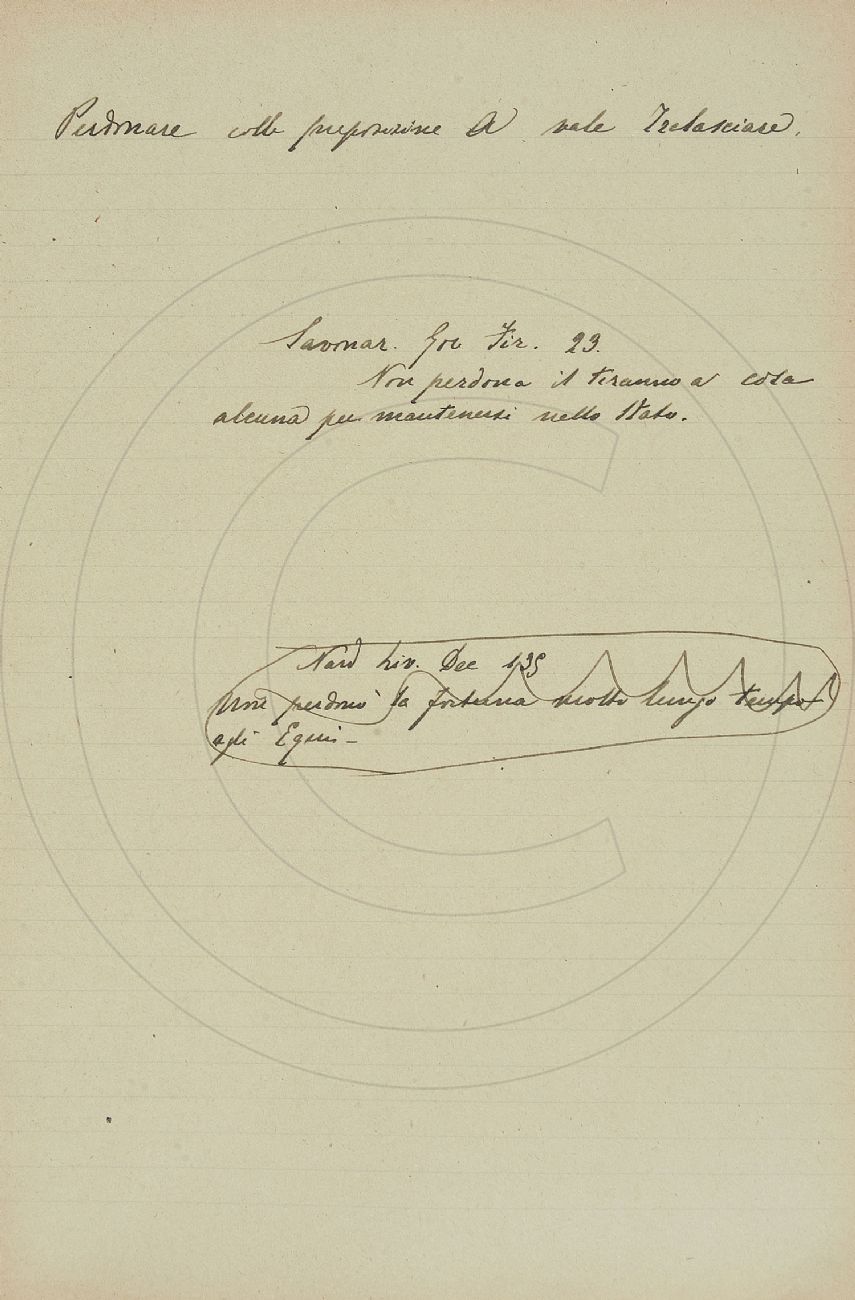 Perdonare colla preposizione A vale Tralasciare.
Savonar. Gov Fir. 23.
Non perdona il tiranno a cosa
alcuna per mantenersi nello Stato.
Nard Liv. Dec 135
Non perdonò la fortuna molto lungo tempo
agli Equi –